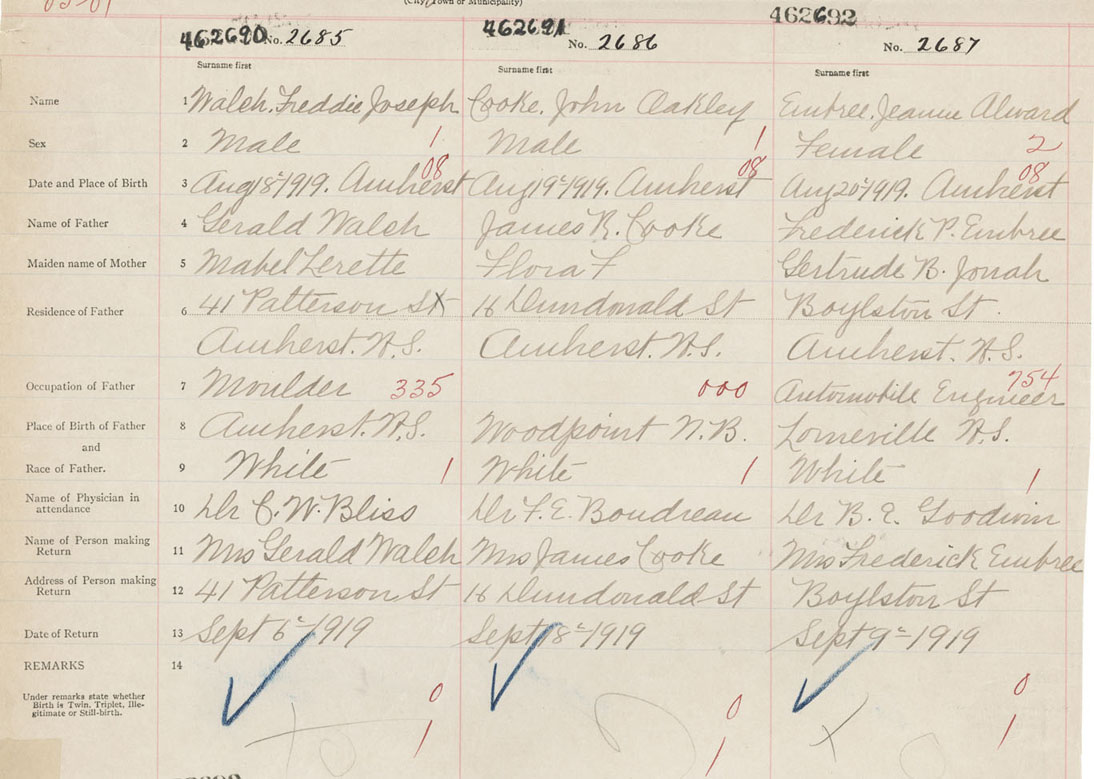 (City, Town or Municipality)
462690 No. 2685 462691 No. 2686 462692 No. 2687
Surname first Surname first Surname first
Name 1 Walsh. Freddie Joseph Cooke. John Oakley Embree. Jeanne Alward
Sex 2 Male 1 Male 1 Female 2
08 08 08
Date and Place of Birth 3 Aug 18th 1919. Amherst Aug 19th 1919. Amherst Aug 20th 1919. Amherst
Name of Father 4 Gerald Walsh James R. Cooke Frederick P. Embree
Maiden name of Mother 5 Mabel Lerette Flora F Gertrude B. Jonah
Residence of Father 6 41 Patterson St 16 Dundonald St Boylston St.
Amherst. N.S. Amherst. N.S. Amherst. N.S.
Occupation of Father 7 Moulder 335 000 Automobile Engineer 754
Place of Birth of Father 8 Amherst. N.S. Woodpoint N.B. Lorneville N.S.
and
Race of Father. 9 White 1 White 1 White 1
Name of Physician in
attendance 10 Dr C. W. Bliss Dr F. E. Boudreau Dr B. E. Goodwin
Name of Person making
Return 11 Mrs Gerald Walsh Mrs James Cooke Mrs Frederick Embree
Address of Person making
Return 12 41 Patterson St 16 Dundonald St Boylston St
Date of Return 13 Sept 6th 1919 Sept 8th 1919 Sept 9th 1919
REMARKS 14
Under remarks state whether
Birth is Twin, Triplet, Ille-
gitimate or Still-birth.
0 0 0
1 1 1